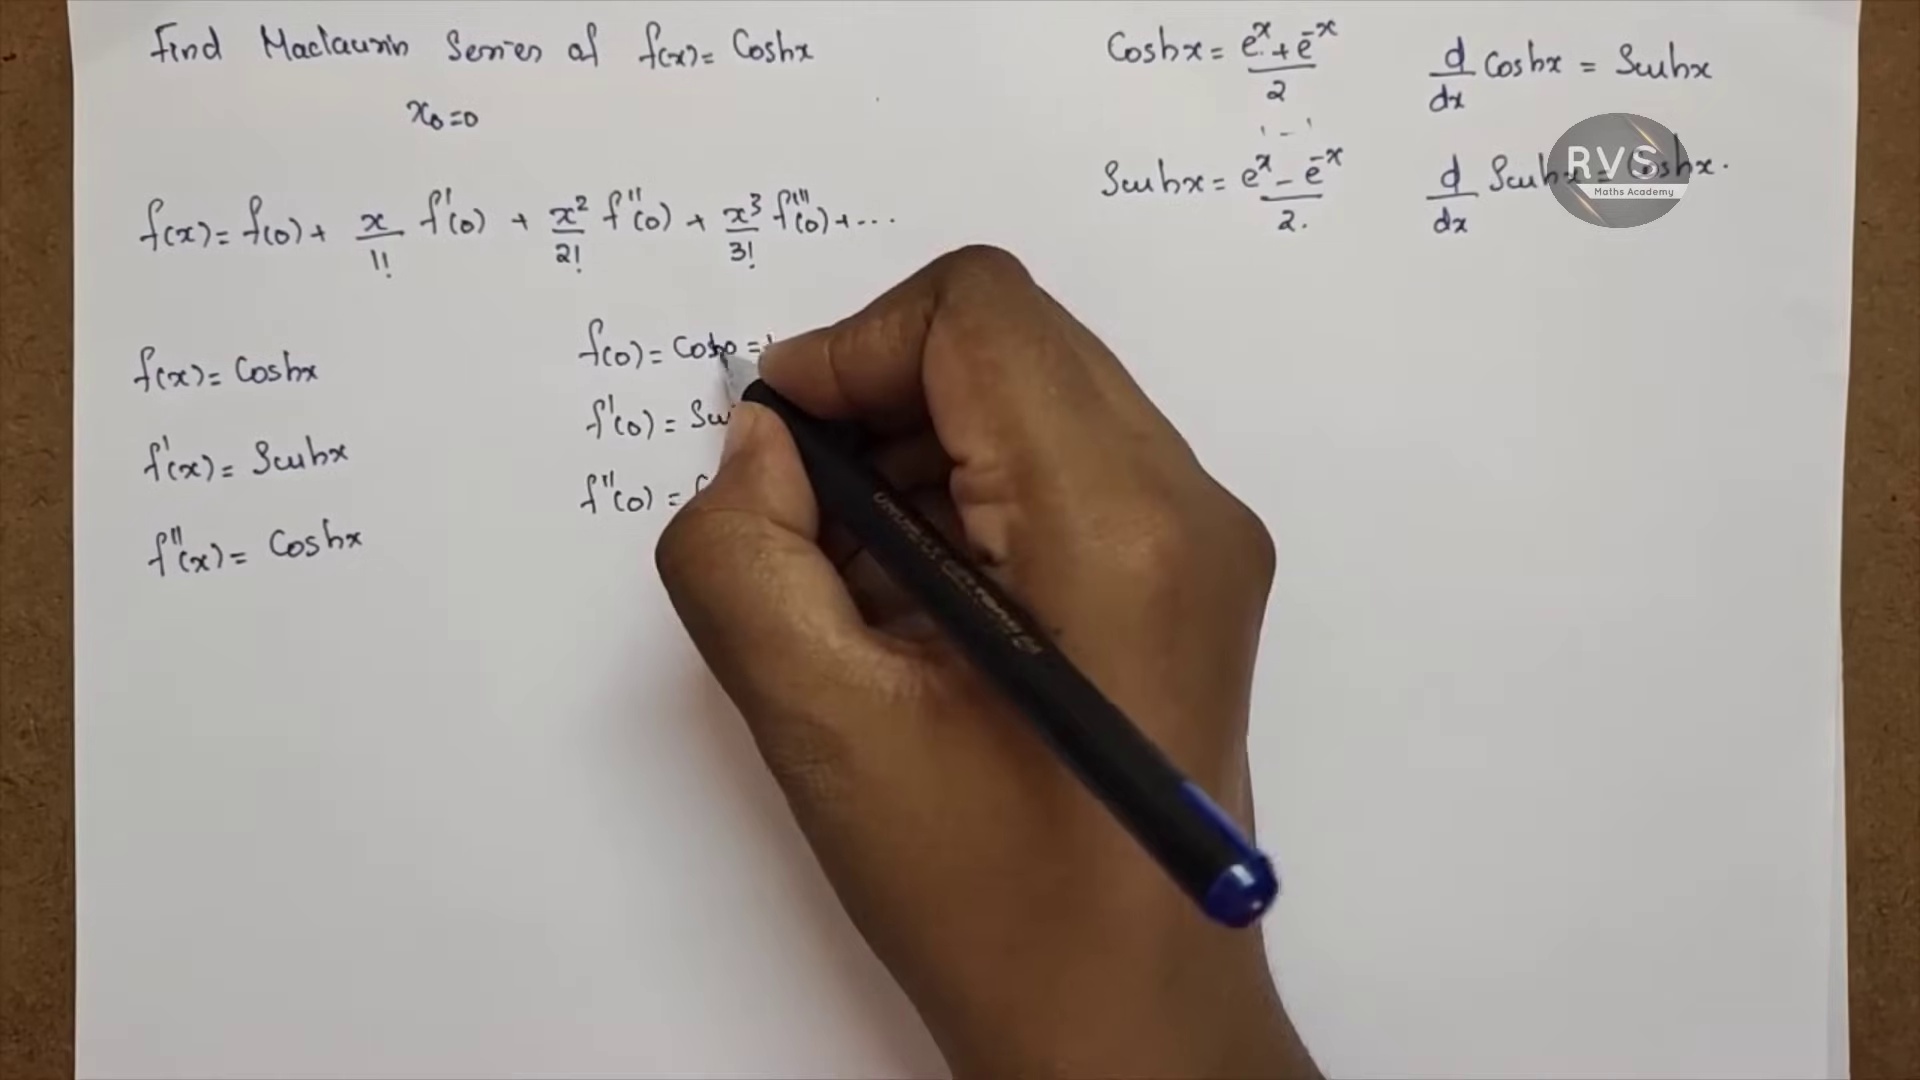 Find Maclaurin Series of f(x) = Coshx
x₀=0
f(x) = f(0) + x/1! f'(0) + x²/2! f''(0) + x³/3! f'''(0) + ...
f(x) = Coshx
f'(x) = Sinhx
f''(x) = Coshx
f(0) = Cosh0 = 1
f'(0) =
f''(0) =
Coshx = eˣ + e⁻ˣ / 2
Sinhx = eˣ - e⁻ˣ / 2.
d/dx Coshx = Sinhx
d/dx Sinhx = Coshx.
RVS
Maths Academy